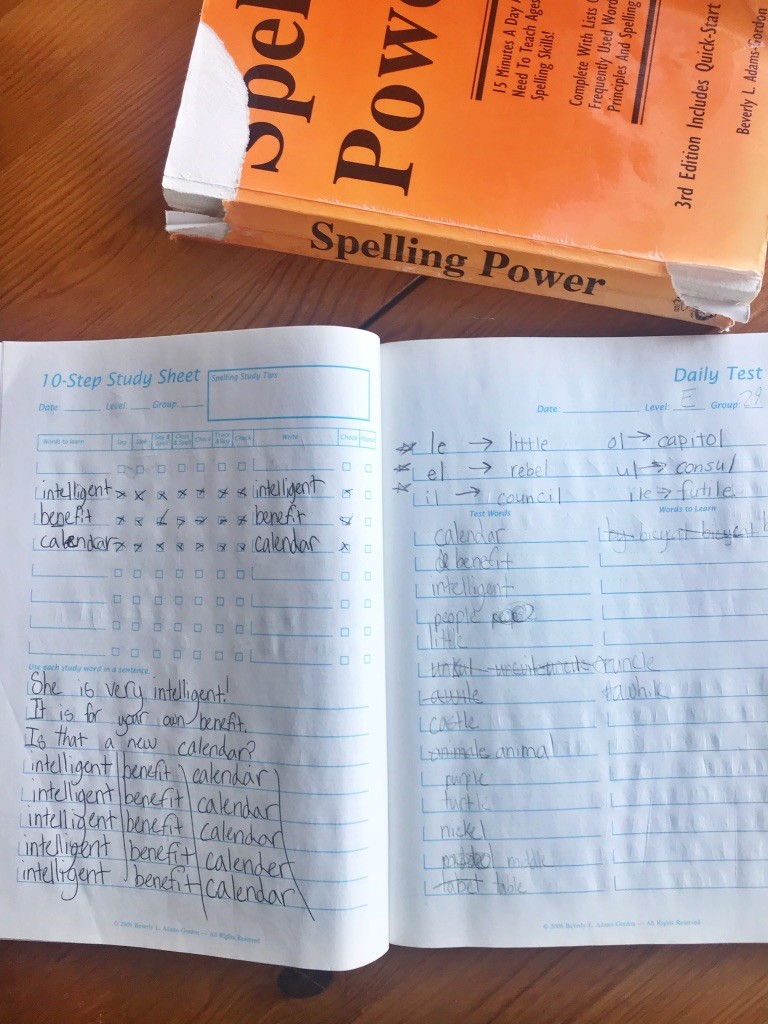 Spel
Powe
15 Minutes A Day
Need To Teach Ages
Spelling Skills!
Complete With Lists
Frequently Used Word
Principles And Spelling
3rd Edition Includes Quick-Start
Beverly L. Adams-Gordon
Spelling Power
10-Step Study Sheet
Spelling Study Tips:
Date: Level: Group:
Words to learn Say Look Check Check Write Check
intelligent intelligent
benefit benefit
calendar calendar
Use each study word in a sentence.
She is very intelligent!
It is for your own benefit.
Is that a new calendar?
intelligent benefit calendar
intelligent benefit calendar
intelligent benefit calendar
intelligent benefit calendert
intelligent benefit calendar
© 2006 Beverly L. Adams-Gordon — All Rights Reserved
Daily Test
Date: Level: E Group: 29
le → little ol → capitol
el → rebel ul → consul
il → council ile → futile
Test Words Words to Learn
calendar
benefit
intelligent
people
little
uncle
awhile
castle
animale animal
purple
turtle
nickel
middle
tabel table
© 2006 Beverly L. Adams-Gordon — All Rights Reserved